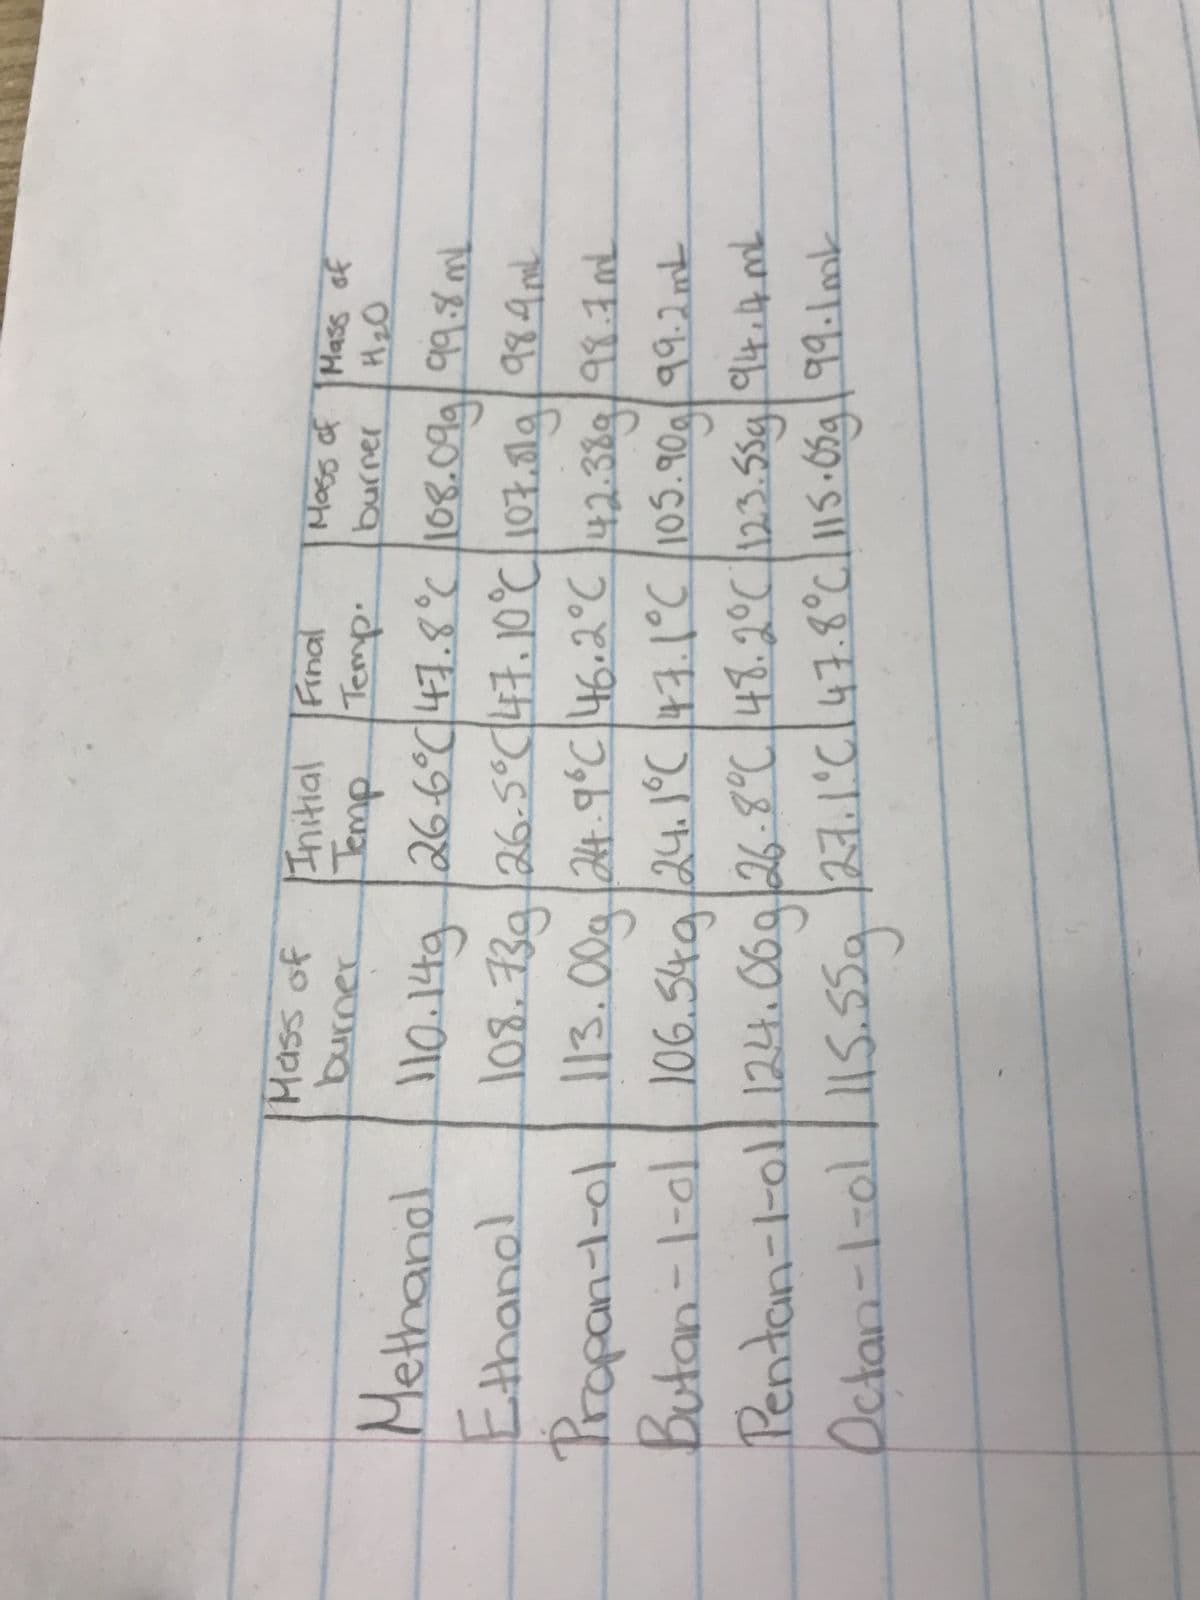 Mass of burner | Initial Temp | Final Temp. | Mass of burner | Mass of H₂O
Methanol | 110.14g | 26.6°C | 47.8°C | 108.09g | 99.8 ml
Ethanol | 108.73g | 26.5°C | 47.10°C | 107.81g | 98.9 mL
Propan-1-ol | 113.00g | 24.9°C | 46.2°C | 142.38g | 98.7 mL
Butan-1-ol | 106.54g | 24.1°C | 47.1°C | 105.90g | 99.2 mL
Pentan-1-ol | 124.06g | 26.8°C | 48.2°C | 123.55g | 94.4 mL
Octan-1-ol | 115.55g | 27.1°C | 47.8°C | 115.05g | 99.1 mL